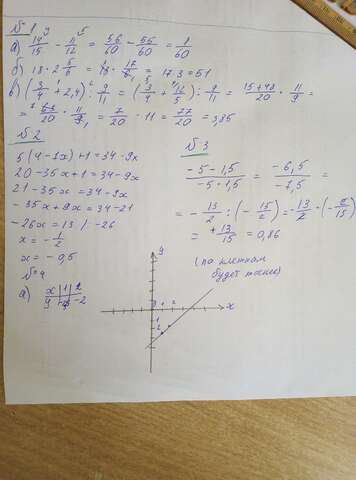 № 1
а) 14/15 - 11/12 = 56/60 - 55/60 = 1/60
б) 18 · 2 5/6 = 18 · 17/6 = 17·3 = 51
в) (3/4 + 2,4) : 9/11 = (3/4 + 12/5) : 9/11 = 15+48/20 · 11/9 =
= 63/20 · 11/9 = 7/20 · 11 = 77/20 = 3,85
№ 2
5(4-7x)+1=34-9x
20-35x+1=34-9x
21-35x=34-9x
-35x+9x=34-21
-26x=13 /-26
x = -1/2
x = -0,5
№ 3
-5-1,5/-5·1,5 = -6,5/-7,5 =
= -13/2 : (-15/2) = -13/2 · (-2/15)
= +13/15 = 0,86
№ 4
а) x | 1 | 2
y | | -2
y
x
0 1 2
1
2
(по клеткам
будет точнее)